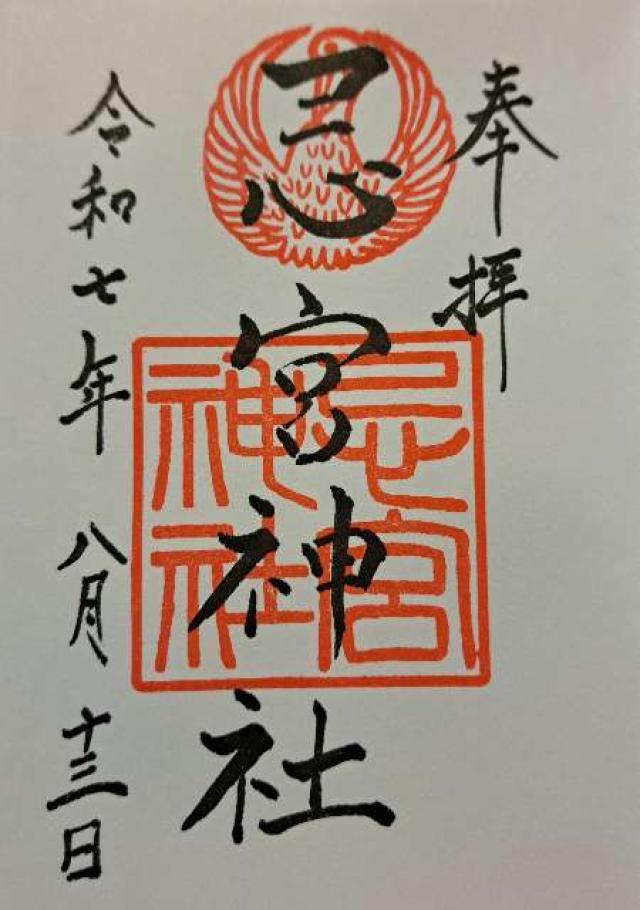 奉拝
忌宮神社
忌宮
神社
令和七年 八月 十三日